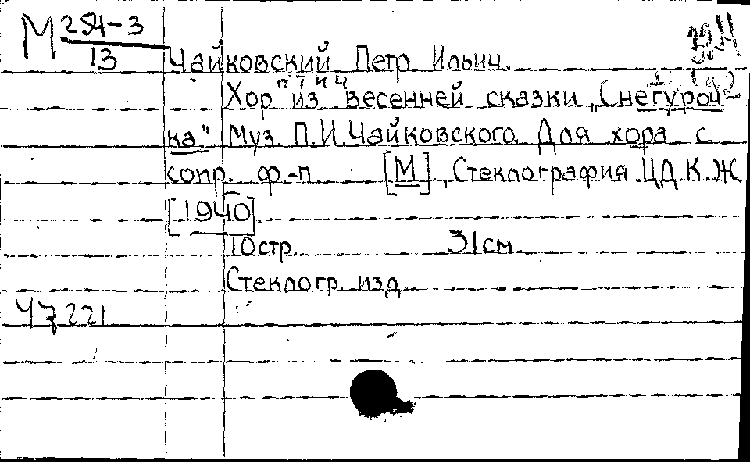 М 254-3
13
Чайковский Петр Ильич.
Хор из весенней сказки „Снегуроч-
ка" Муз. П.И.Чайковского. Для хора с
сопр. ф.-п. [М], Стеклография ЦДКЖ
[1940].
10стр. 31см.
Стеклогр. изд.
47221